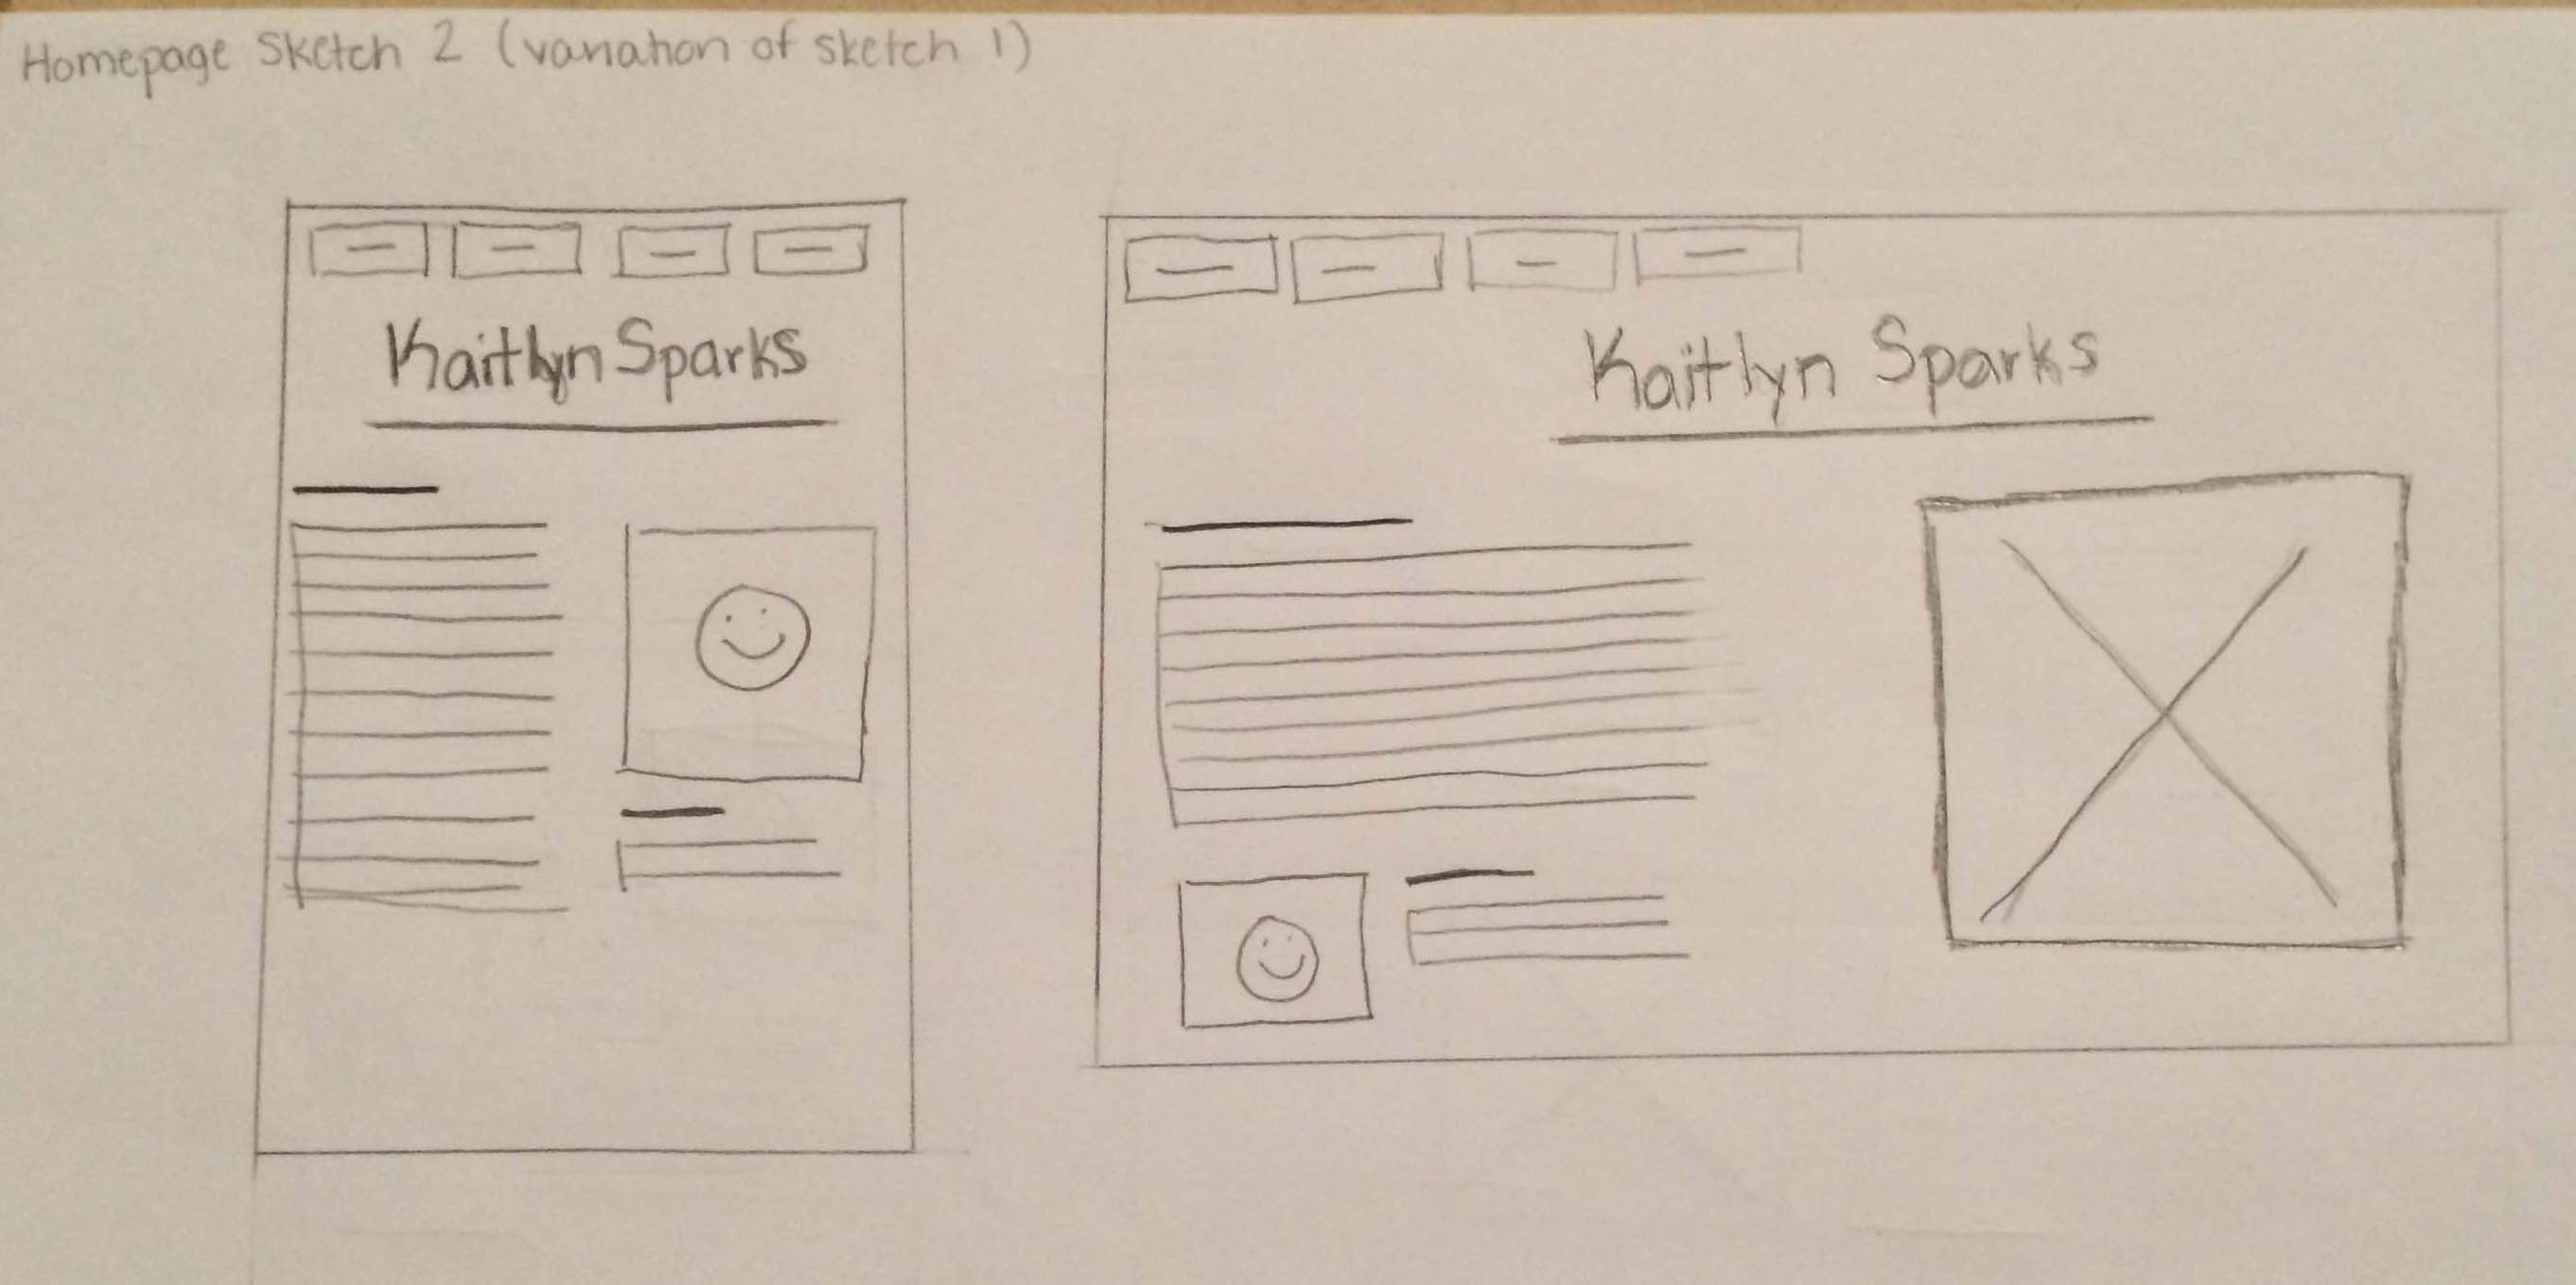 Homepage Sketch 2 (variation of sketch 1)
Kaitlyn Sparks
Kaitlyn Sparks